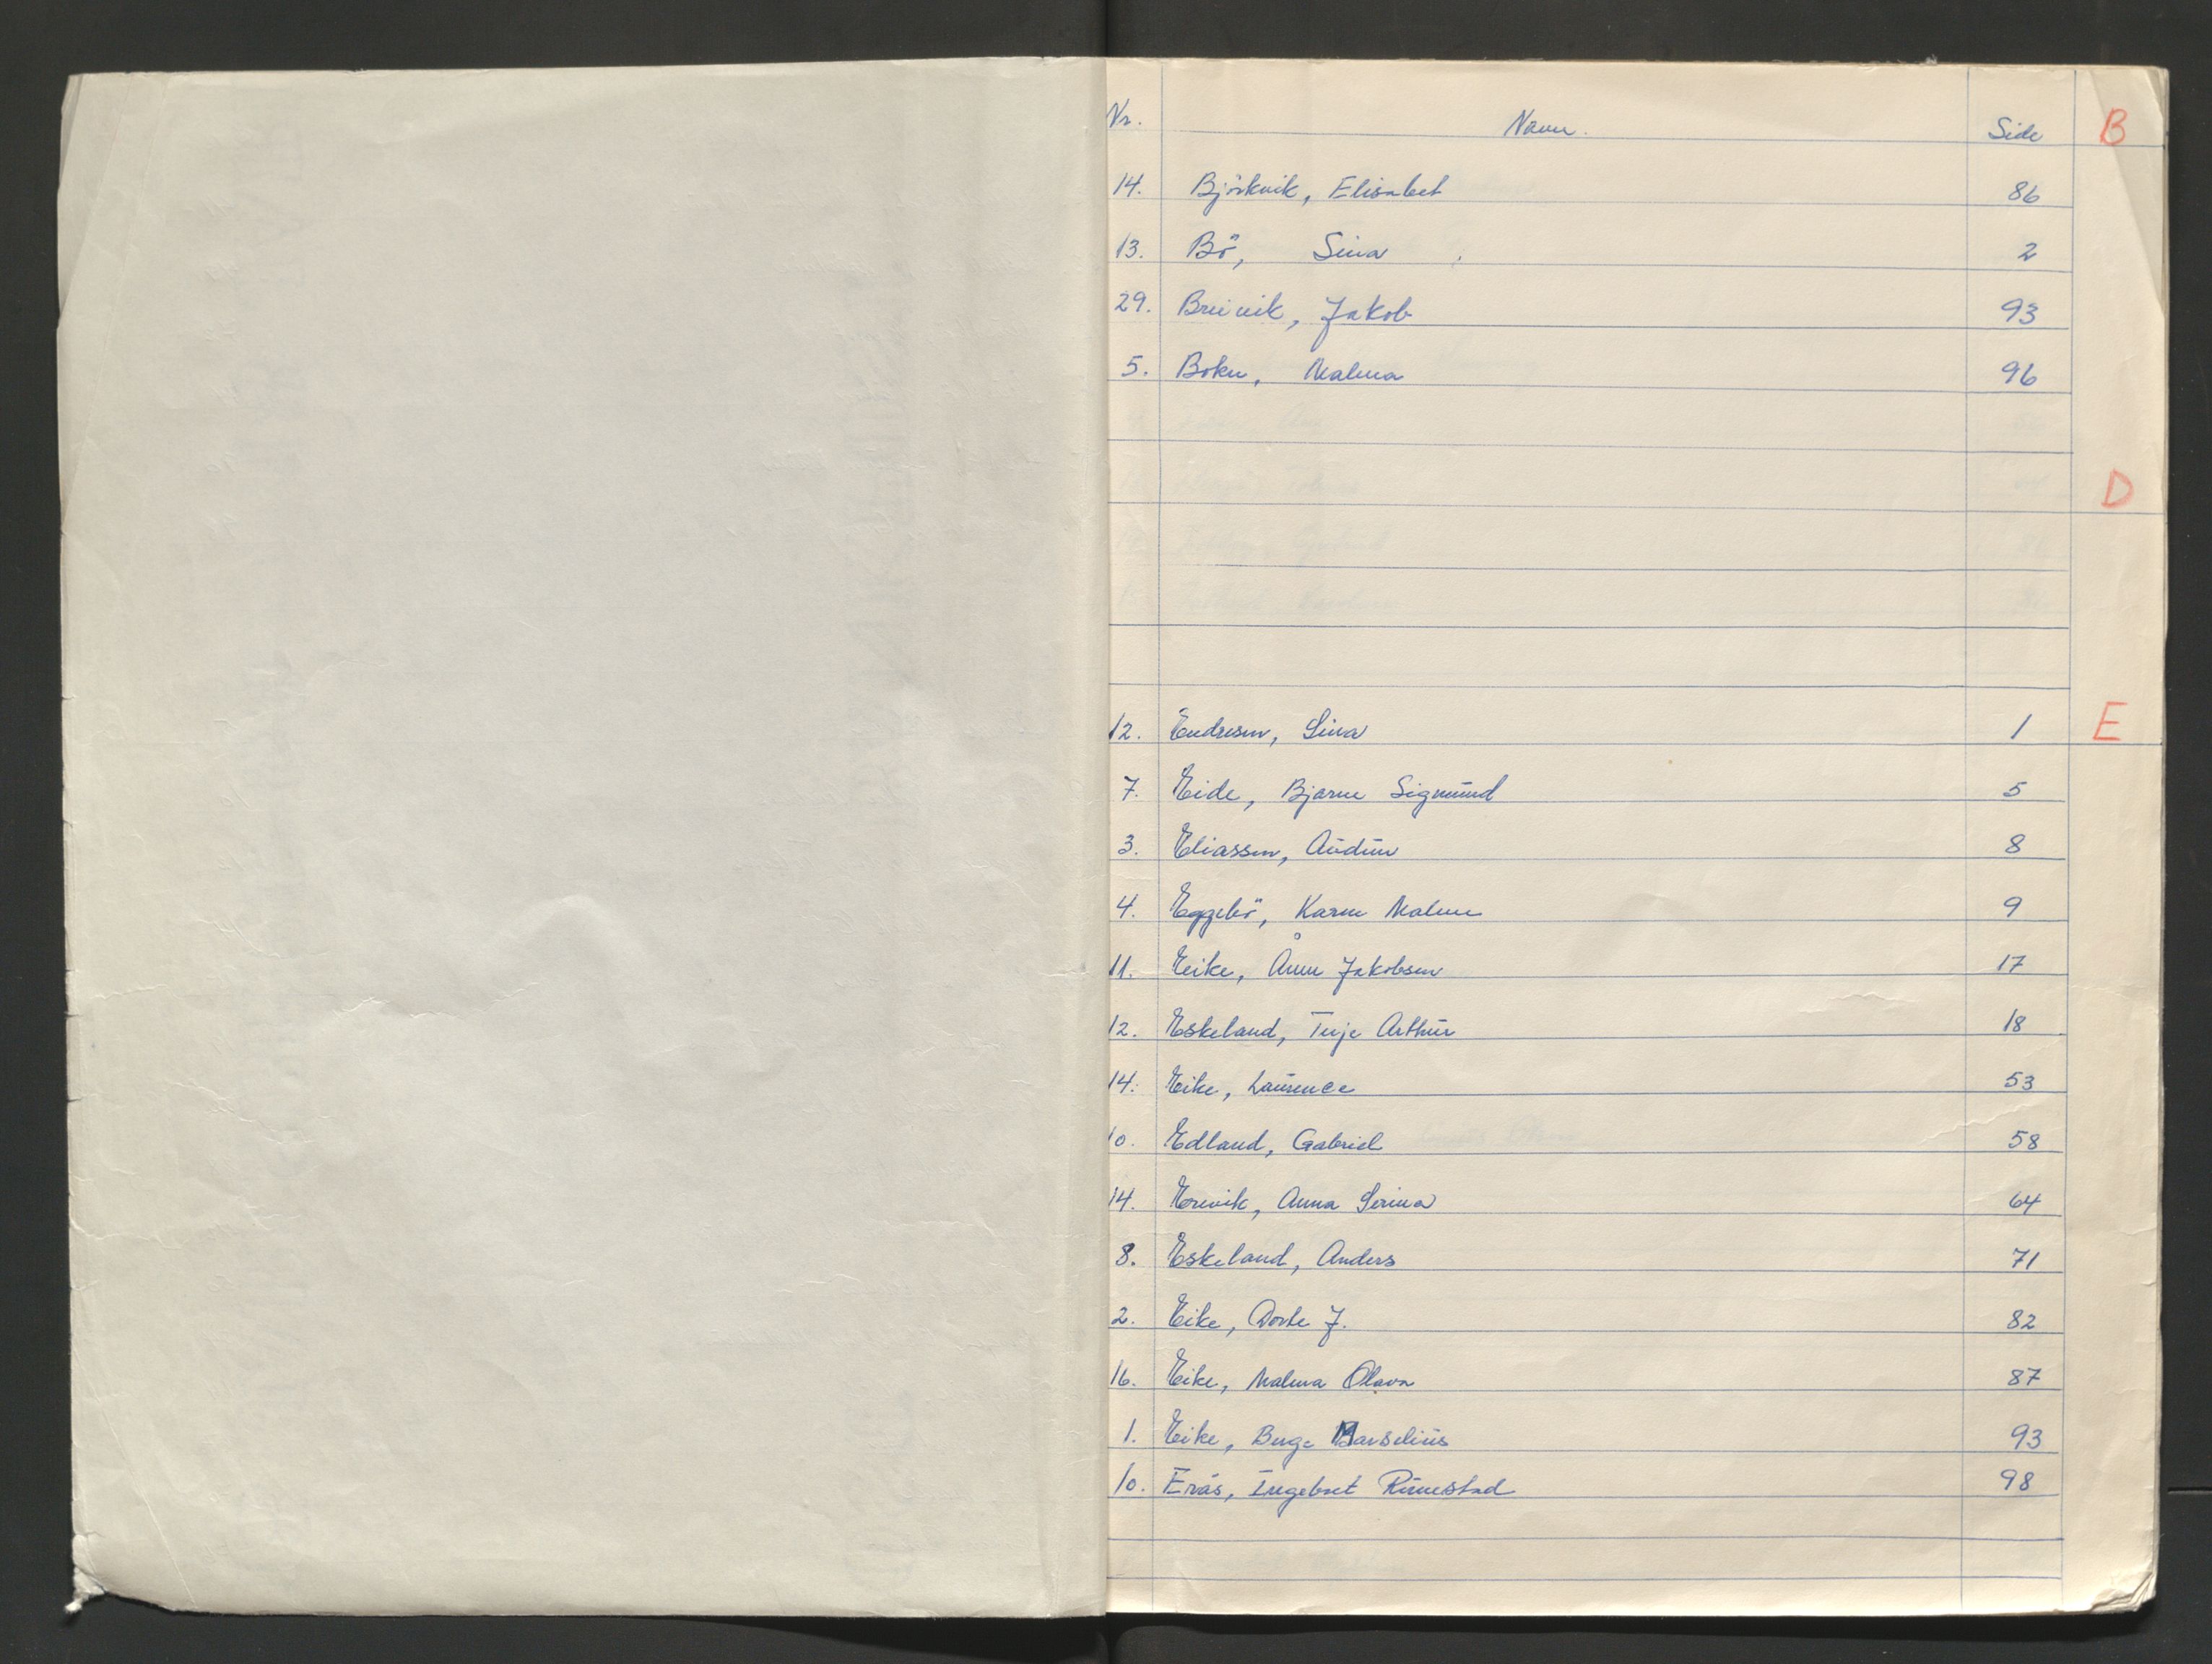 Nr. Navn. Side B
14. Björkvik, Elisabet 86
13. Bö, Sina 2
29. Breivik, Jakob 93
5. Bokn, Malena 96
D
12. Endresen, Sina 1 E
7. Eide, Bjarne Sigmund 5
3. Eliassen, Audun 8
4. Eggebö, Karen Malene 9
11. Eike, Ånen Jakobsen 17
12. Eskeland, Terje Arthur 18
14. Eike, Laurence 53
10. Edland, Gabriel 58
14. Erevik, Anna Serina 64
8. Eskeland, Anders 71
2. Eike, Dorte J. 82
16. Eike, Malena Olava 87
1. Eike, Berge Marselius 93
10. Erås, Ingebret Rimestad 98